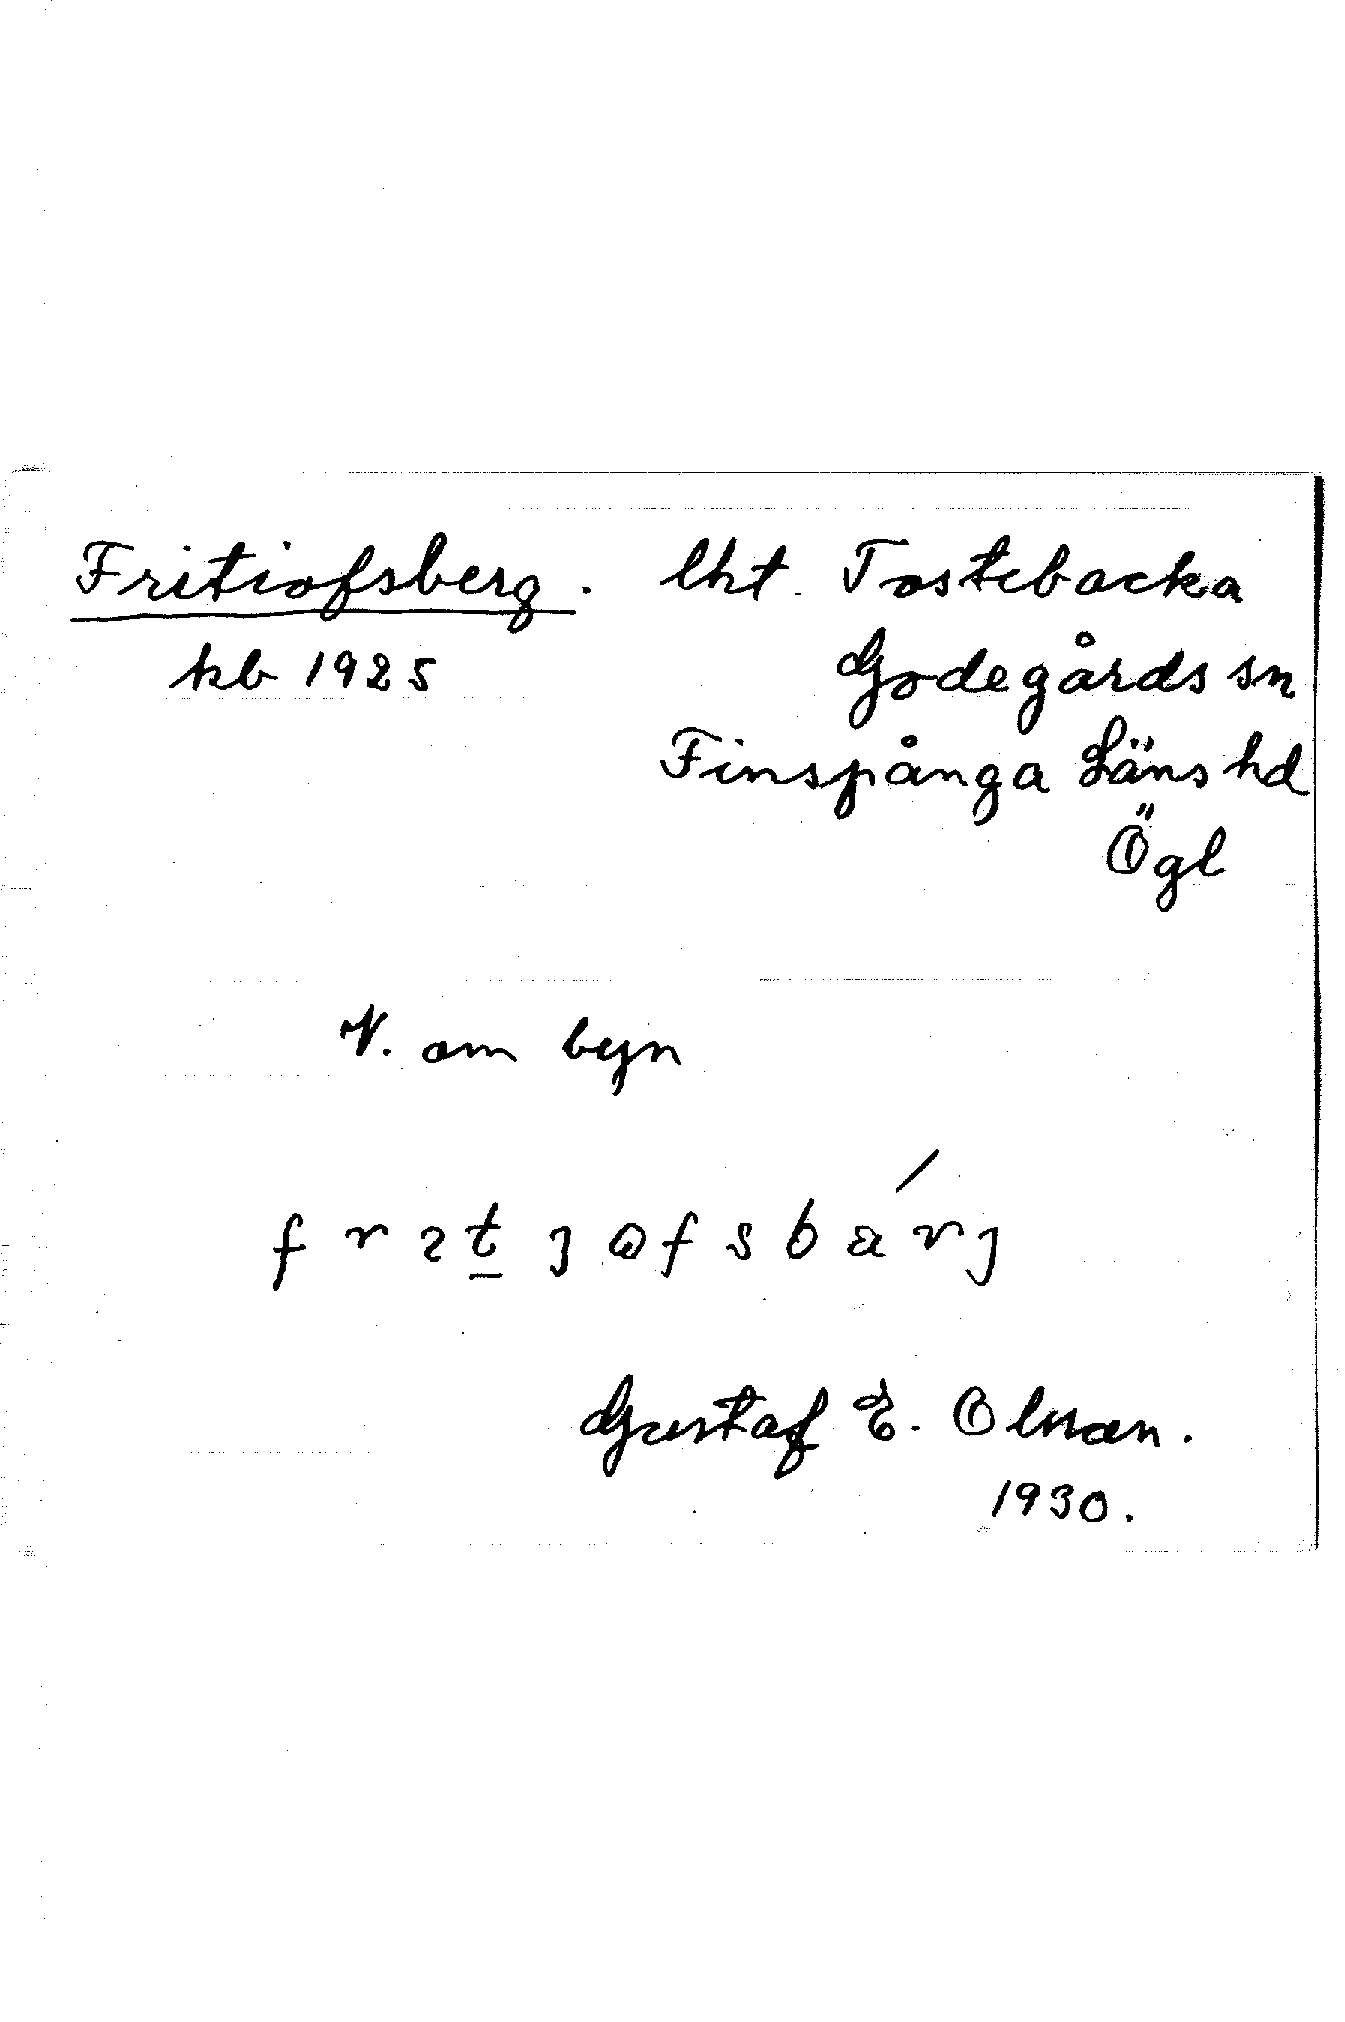 Fritiofsberg. lht. Tostebacka
kb 1925 Godegårds sn
Finspånga Läns hd
Ögl
V. om byn
frɩt̲ȷofsbárȷ
Gustaf E. Olsson.
1930.